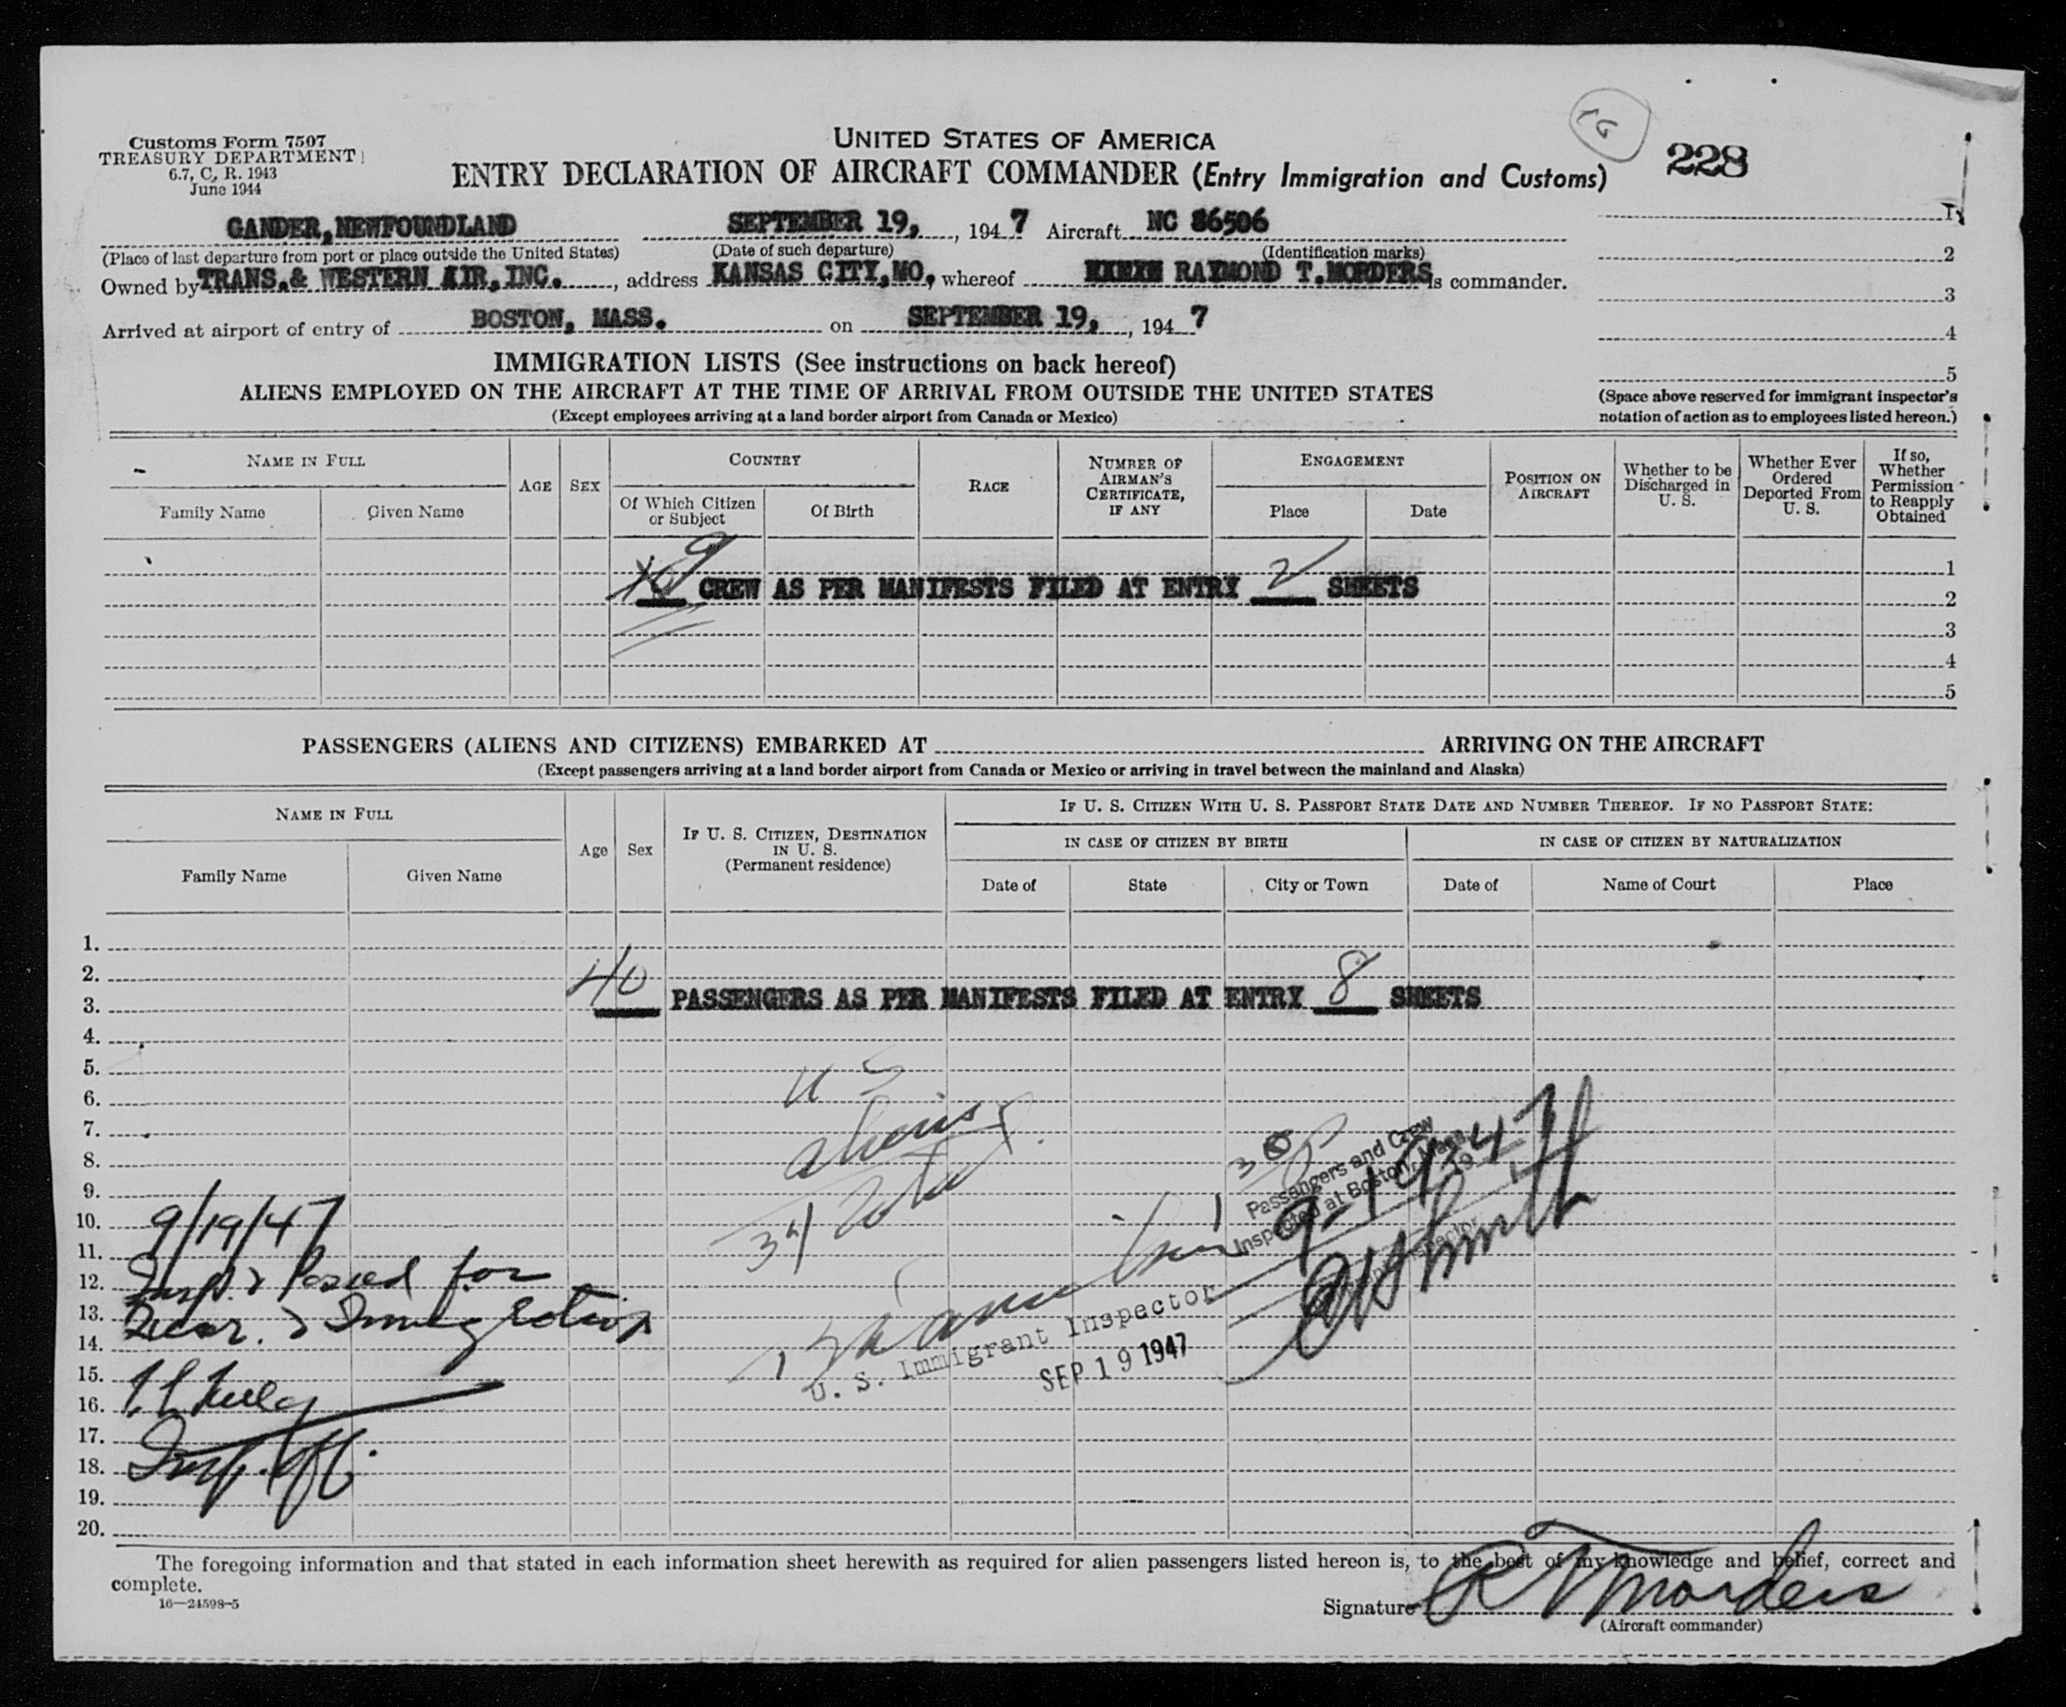 Customs Form 7507
TREASURY DEPARTMENT
6.7, C. R. 1943
June 1944
UNITED STATES OF AMERICA
ENTRY DECLARATION OF AIRCRAFT COMMANDER (Entry Immigration and Customs)
228
GANDER, NEWFOUNDLAND SEPTEMBER 19, , 1947 Aircraft NC 86506
(Place of last departure from port or place outside the United States) (Date of such departure) (Identification marks)
Owned by TRANS.& WESTERN AIR, INC. , address KANSAS CITY, MO, whereof RAYMOND T. MORDERS is commander.
Arrived at airport of entry of BOSTON, MASS. on SEPTEMBER 19, , 1947
1
2
3
4
5
(Space above reserved for immigrant inspector's
notation of action as to employees listed hereon.)
IMMIGRATION LISTS (See instructions on back hereof)
ALIENS EMPLOYED ON THE AIRCRAFT AT THE TIME OF ARRIVAL FROM OUTSIDE THE UNITED STATES
(Except employees arriving at a land border airport from Canada or Mexico)
NAME IN FULL
Family Name
Given Name
AGE
SEX
COUNTRY
Of Which Citizen or Subject
Of Birth
RACE
NUMBER OF AIRMAN'S CERTIFICATE, IF ANY
ENGAGEMENT
Place
Date
POSITION ON AIRCRAFT
Whether to be Discharged in U. S.
Whether Ever Ordered Deported From U. S.
If so, Whether Permission to Reapply Obtained
9
CREW AS PER MANIFESTS FILED AT ENTRY 2 SHEETS
1
2
3
4
5
PASSENGERS (ALIENS AND CITIZENS) EMBARKED AT ARRIVING ON THE AIRCRAFT
(Except passengers arriving at a land border airport from Canada or Mexico or arriving in travel between the mainland and Alaska)
NAME IN FULL
Family Name
Given Name
Age
Sex
IF U. S. CITIZEN, DESTINATION IN U. S. (Permanent residence)
IF U. S. CITIZEN WITH U. S. PASSPORT STATE DATE AND NUMBER THEREOF. IF NO PASSPORT STATE:
IN CASE OF CITIZEN BY BIRTH
Date of
State
City or Town
IN CASE OF CITIZEN BY NATURALIZATION
Date of
Name of Court
Place
1.
2.
3.
40 PASSENGERS AS PER MANIFESTS FILED AT ENTRY 8 SHEETS
4.
5.
6.
7.
8.
9.
10.
11.
12.
13.
14.
15.
16.
17.
18.
19.
20.
U S
aliens
34 total
Passengers and Crew
Inspected at Boston, Mass.
9-19-47
U. S. Immigrant Inspector
SEP 19 1947
9/19/47
Insp. & Passed for
& Immigration
The foregoing information and that stated in each information sheet herewith as required for alien passengers listed hereon is, to the best of my knowledge and belief, correct and
complete.
16—24598-5
Signature R T Morders
(Aircraft commander)